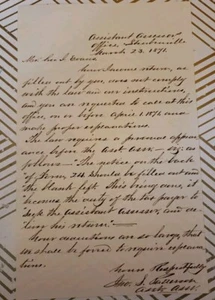 Assistant Assessor's
Office, Steubenville
March 23, 1871.
Mr. Geo. L. Evans
Your Income return, as
filled out by you, does not comply
with the law and our instructions,
and you are requested to call at this
office, on or before April 1st and
make proper explanations.
The law requires a personal appear
ance before the Asst. Assr.
follows — The notice on the back
of Form 24 should be filled out and
the blank left. This being done, it
becomes the duty of the tax payer to
seek the Assistant Assessor, and
his return."
Your are so large, that
we shall be forced to require explana
tions.
Yours Respectfully
Asst. Assr.